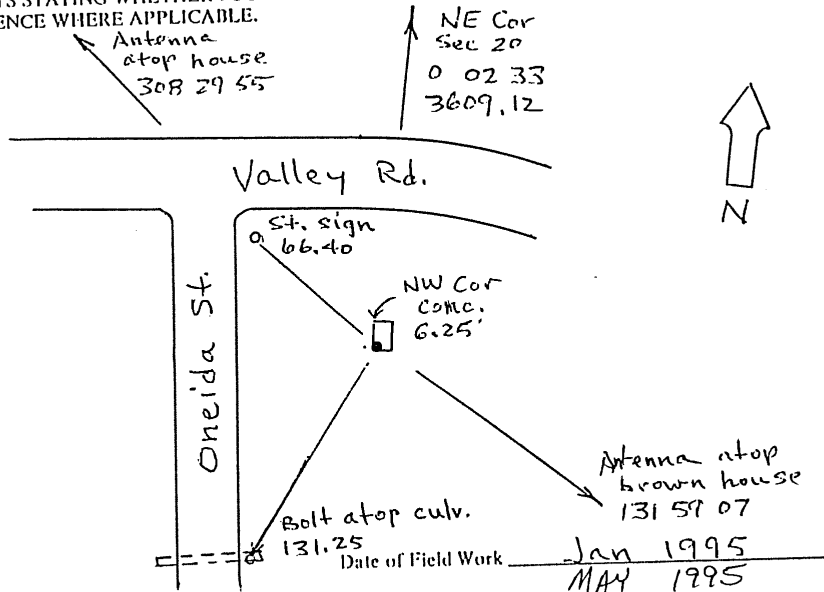 ENCE WHERE APPLICABLE.
Antenna
atop house
308 29 55
NE Cor
Sec 20
0 02 33
3609.12
Valley Rd.
N
St. sign
66.40
Oneida St.
NW Cor
Conc.
6.25'
Antenna atop
brown house
131 59 07
Bolt atop culv.
131.25
Date of Field Work
Jan 1995
MAY 1995